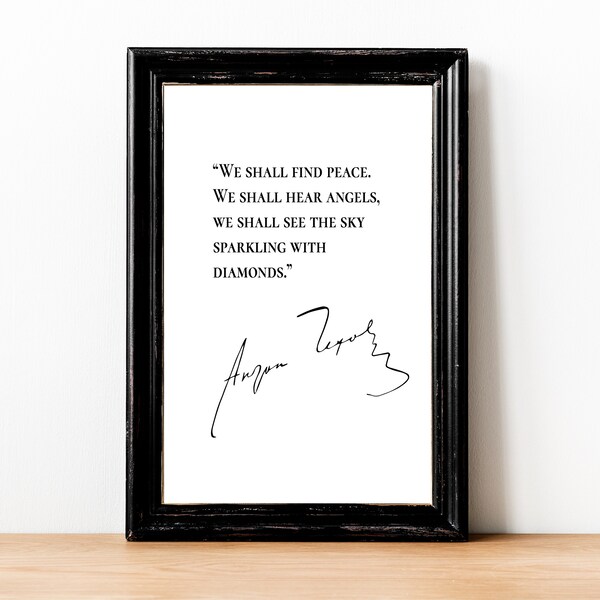 “We shall find peace.
We shall hear angels,
we shall see the sky
sparkling with
diamonds.”
Антон Чехов